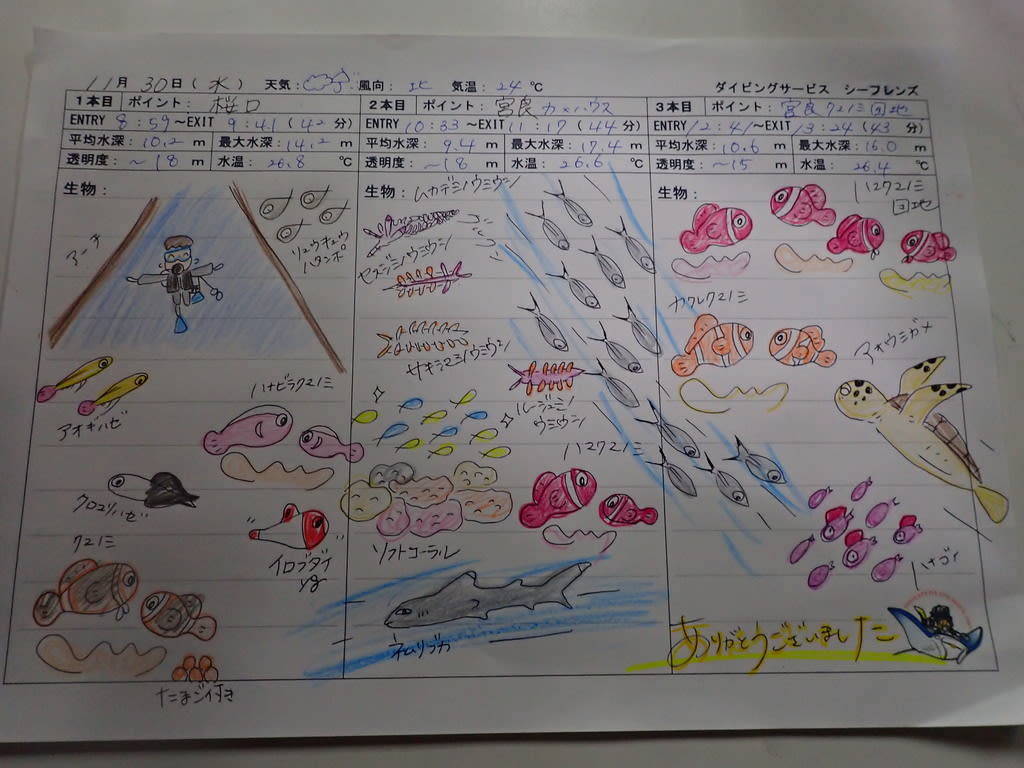 11月 30日(水) 天気: 風向: 北 気温: 24 ℃ ダイビングサービス シーフレンズ
1本目 ポイント: 桜口
ENTRY 8:59~EXIT 9:41(42分)
平均水深: 10.2 m 最大水深: 14.2 m
透明度: ~18 m 水温: 26.8 ℃
生物:
アーチ
リュウキュウ
ハタンポ
アオギハゼ
ハナビラクマノミ
クロユリハゼ
クマノミ
イロブダイ
yg
たまご付き
2本目 ポイント: 宮良 カメハウス
ENTRY 10:33~EXIT 11:17(44分)
平均水深: 9.4 m 最大水深: 17.4 m
透明度: ~18 m 水温: 26.6 ℃
生物: ムカデミノウミウシ
セスジミノウミウシ
サキシマミノウミウシ
ルージュミノ
ウミウシ
ハマクマノミ
ソフトコーラル
ネムリブカ
3本目 ポイント: 宮良 クマノミ団地
ENTRY 12:41~EXIT 13:24(43分)
平均水深: 10.6 m 最大水深: 16.0 m
透明度: ~15 m 水温: 26.4 ℃
生物:
ハマクマノミ
団地
カクレクマノミ
アオウミガメ
ハナゴイ
ありがとうございました